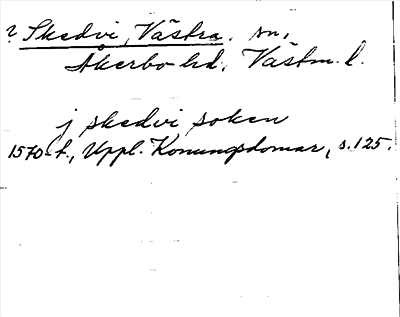 ? Skedvi, Västra, sn,
Åkerbo hd, Västm. l.
j skedvi soken
1570-t., Uppl. Konungsdomar, s. 125.